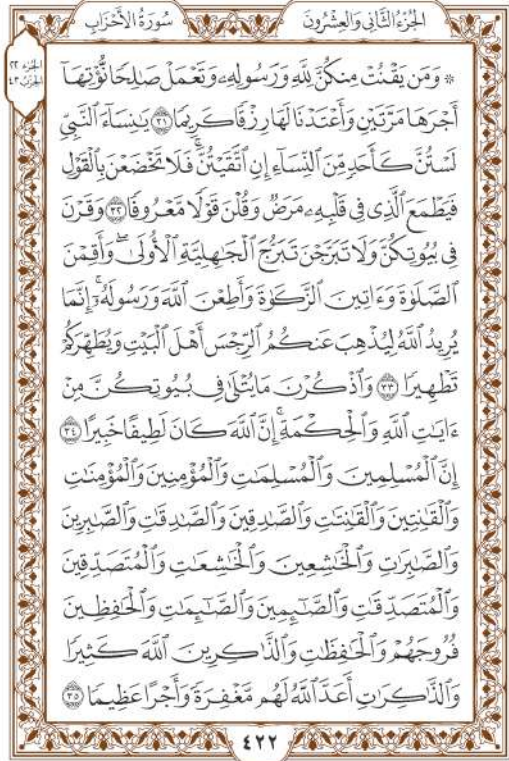 الجُزْءُ الثَّانِي وَالعِشْرُونَ سُورَةُ الأَحْزَابِ
الجزء ٢٢
الحزب ٤٣
۞ وَمَن يَقْنُتْ مِنكُنَّ لِلَّهِ وَرَسُولِهِۦ وَتَعْمَلْ صَٰلِحًا نُّؤْتِهَآ
أَجْرَهَا مَرَّتَيْنِ وَأَعْتَدْنَا لَهَا رِزْقًا كَرِيمًا ٣١ يَٰنِسَآءَ ٱلنَّبِيِّ
لَسْتُنَّ كَأَحَدٍ مِّنَ ٱلنِّسَآءِ إِنِ ٱتَّقَيْتُنَّۚ فَلَا تَخْضَعْنَ بِٱلْقَوْلِ
فَيَطْمَعَ ٱلَّذِى فِى قَلْبِهِۦ مَرَضٌ وَقُلْنَ قَوْلًا مَّعْرُوفًا ٣٢ وَقَرْنَ
فِى بُيُوتِكُنَّ وَلَا تَبَرَّجْنَ تَبَرُّجَ ٱلْجَٰهِلِيَّةِ ٱلْأُولَىٰۖ وَأَقِمْنَ
ٱلصَّلَوٰةَ وَءَاتِينَ ٱلزَّكَوٰةَ وَأَطِعْنَ ٱللَّهَ وَرَسُولَهُۥٓۚ إِنَّمَا
يُرِيدُ ٱللَّهُ لِيُذْهِبَ عَنكُمُ ٱلرِّجْسَ أَهْلَ ٱلْبَيْتِ وَيُطَهِّرَكُمْ
تَطْهِيرًا ٣٣ وَٱذْكُرْنَ مَا يُتْلَىٰ فِى بُيُوتِكُنَّ مِنْ
ءَايَٰتِ ٱللَّهِ وَٱلْحِكْمَةِۚ إِنَّ ٱللَّهَ كَانَ لَطِيفًا خَبِيرًا ٣٤
إِنَّ ٱلْمُسْلِمِينَ وَٱلْمُسْلِمَٰتِ وَٱلْمُؤْمِنِينَ وَٱلْمُؤْمِنَٰتِ
وَٱلْقَٰنِتِينَ وَٱلْقَٰنِتَٰتِ وَٱلصَّٰدِقِينَ وَٱلصَّٰدِقَٰتِ وَٱلصَّٰبِرِينَ
وَٱلصَّٰبِرَٰتِ وَٱلْخَٰشِعِينَ وَٱلْخَٰشِعَٰتِ وَٱلْمُتَصَدِّقِينَ
وَٱلْمُتَصَدِّقَٰتِ وَٱلصَّٰٓئِمِينَ وَٱلصَّٰٓئِمَٰتِ وَٱلْحَٰفِظِينَ
فُرُوجَهُمْ وَٱلْحَٰفِظَٰتِ وَٱلذَّٰكِرِينَ ٱللَّهَ كَثِيرًا
وَٱلذَّٰكِرَٰتِ أَعَدَّ ٱللَّهُ لَهُم مَّغْفِرَةً وَأَجْرًا عَظِيمًا ٣٥
٤٢٢